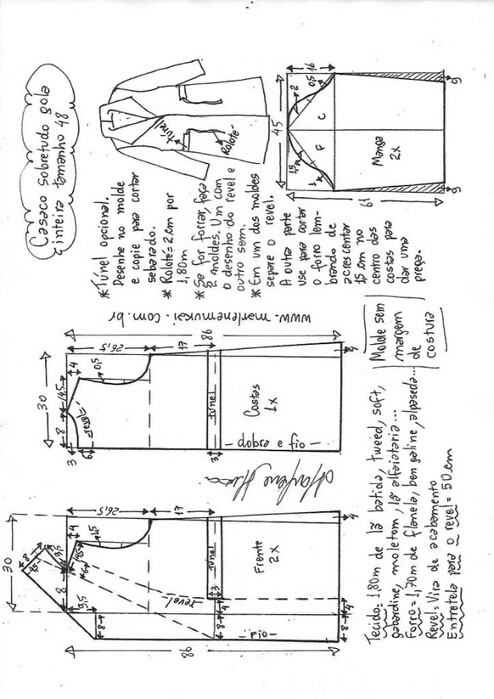 Casaco sobretudo gola
inteira tamanho 48
túnel
Rolotê
* Túnel opcional.
Desenhe no molde
e copie para cortar
separado.
* Rolotê = 2cm por
1,80m
* Se for forrar, faça
2 moldes. Um com
o desenho do revel e
outro sem.
* Em um dos moldes
separe o revel.
A outra parte
use para cortar
o forro lem-
brando de
acrescentar
15 cm no
centro das
costas para
dar uma
prega.
45
16
2
0,5
C
F
1,5
1
Manga
2x
61
6
6
www.marlenemukai.com.br
30
8
14,5
4
26,5
0,5
revel
3
6
17
86
túnel
3
Costas
1x
dobra e fio
4
Marlene Mukai
30
8
8
9,5
4
26,5
1,5
8
9,5
17
revel
túnel
3
Frente
2x
8
4
8
fio
8
4
4
86
Molde sem
margem
de
costura
Tecido: 1,80m de lã batida, tweed, soft,
gabardine, moletom, lã alfaiataria...
Forro = 1,70m de flanela, bengaline, alpaseda...
Revel = Vira de acabamento
Entretela para o revel = 50cm